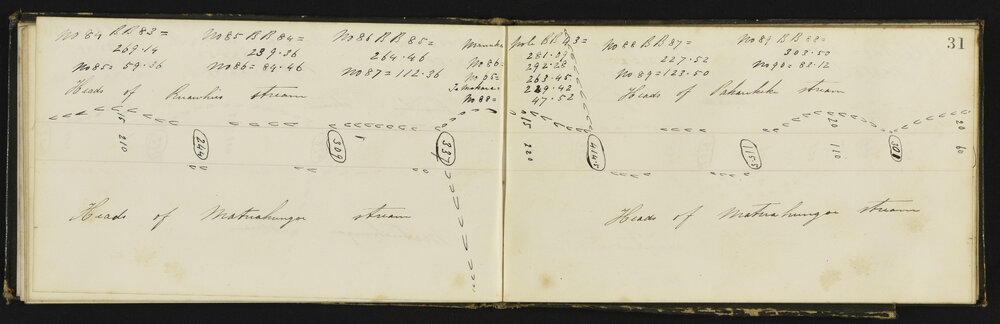 31
No 84 BB 83 =
269.14
No 85 = 59.36
No 85 BB 84 =
239.36
No 86 = 84.46
No 86 BB 85 =
264.46
No 87 = 112.36
pole BB 43 =
281.39
No 86 = 292.28
No 85 = 263.45
229.42
No 88 = 47.52
No 88 BB 87 =
227.52
No 89 = 123.50
No 89 BB 88 =
303.50
No 90 = 82.12
Heads of Ruawhiu stream
Heads of stream
15
210
244
309
5
337
15
220
414.5
115.5
20
110
30
20
60
Heads of Matuahunga stream
Heads of Matuahunga stream